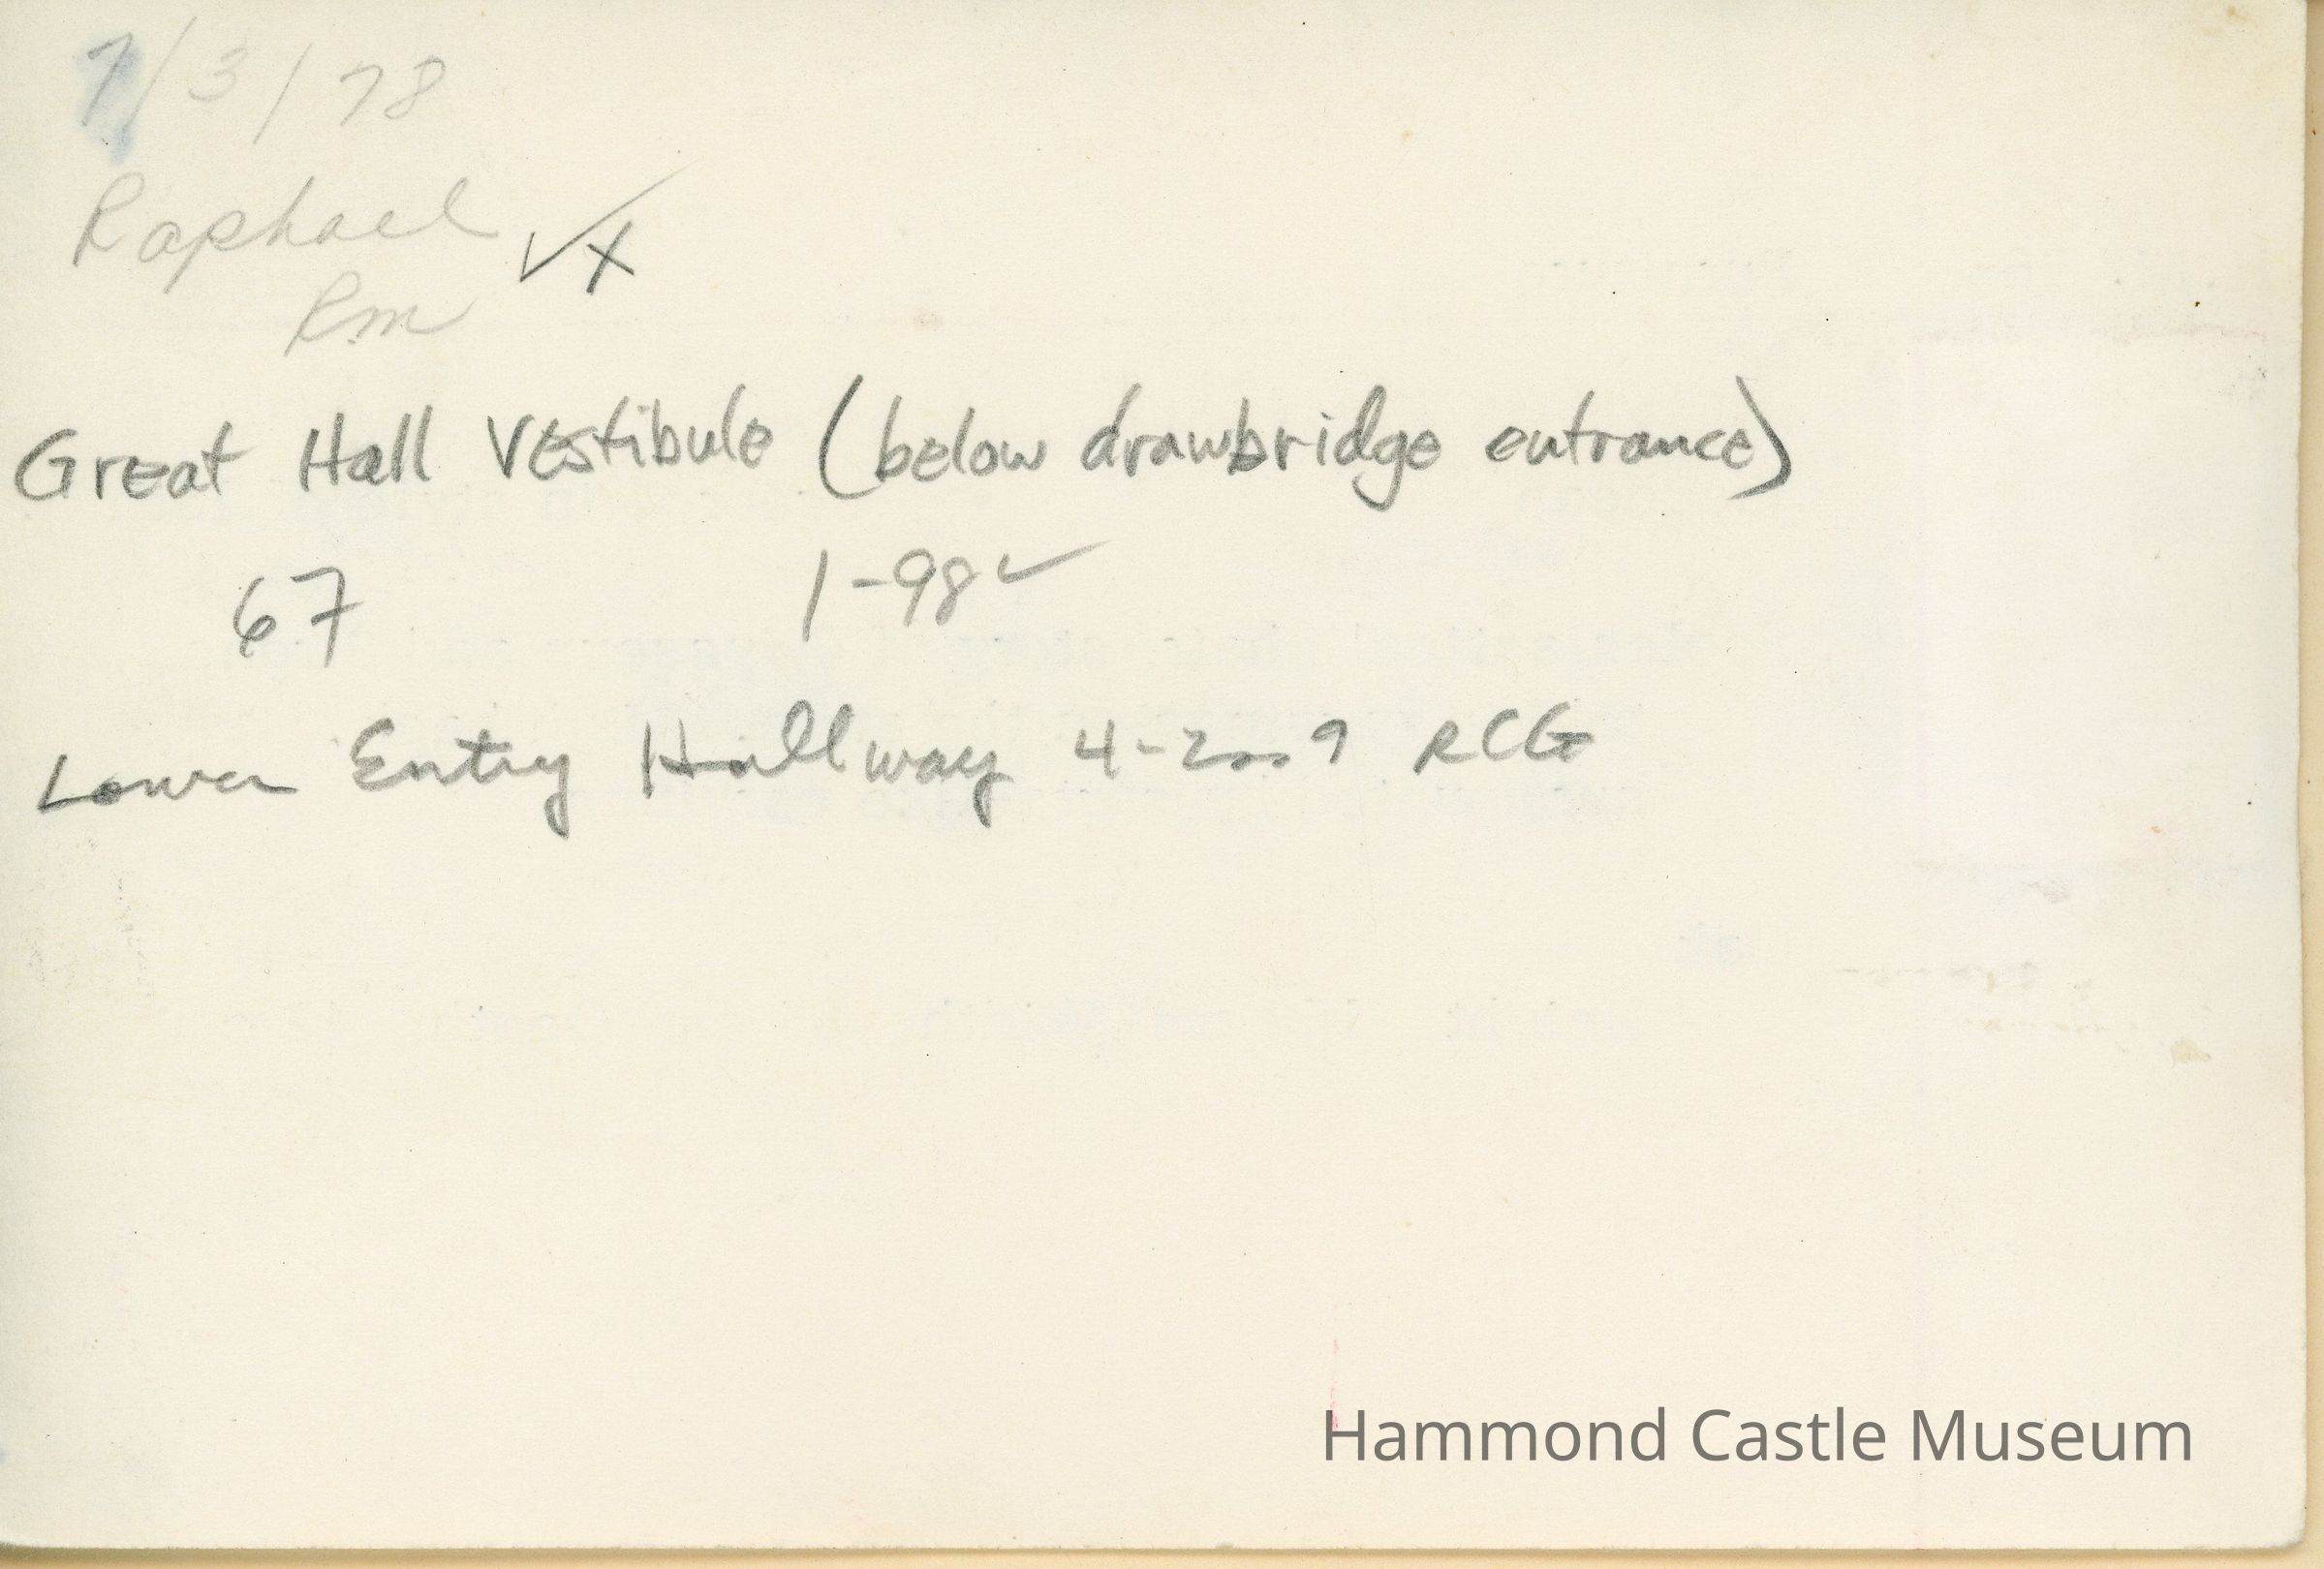 7/3/78
Raphael ✓ X
Rm
Great Hall Vestibule (below drawbridge entrance)
67 1-98 ✓
Lower Entry Hallway 4-2009 RCG
Hammond Castle Museum